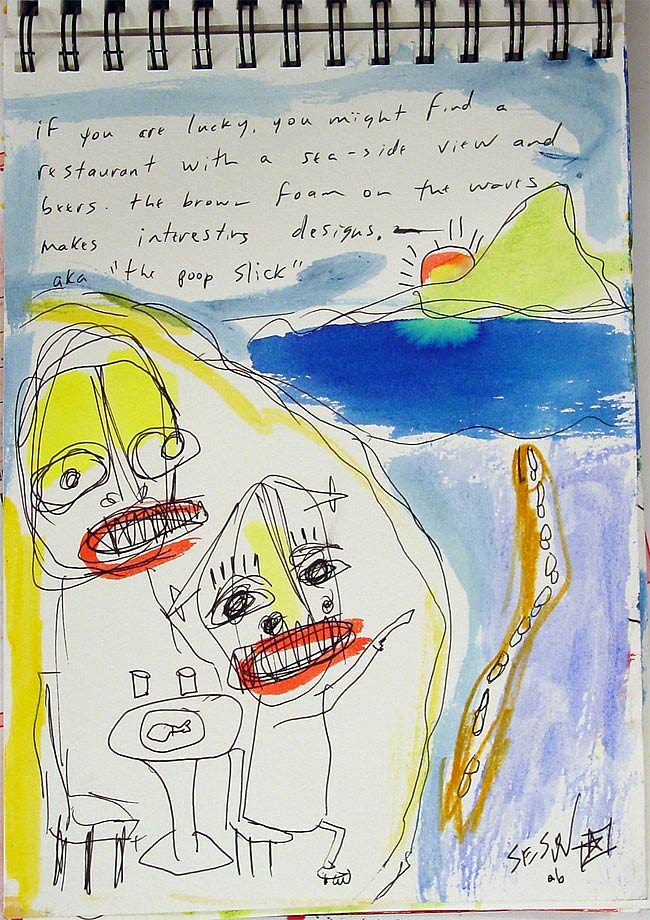 if you are lucky, you might find a
restaurant with a sea-side view and
beers. the brown foam on the waves
makes interesting designs.
aka "the poop slick"